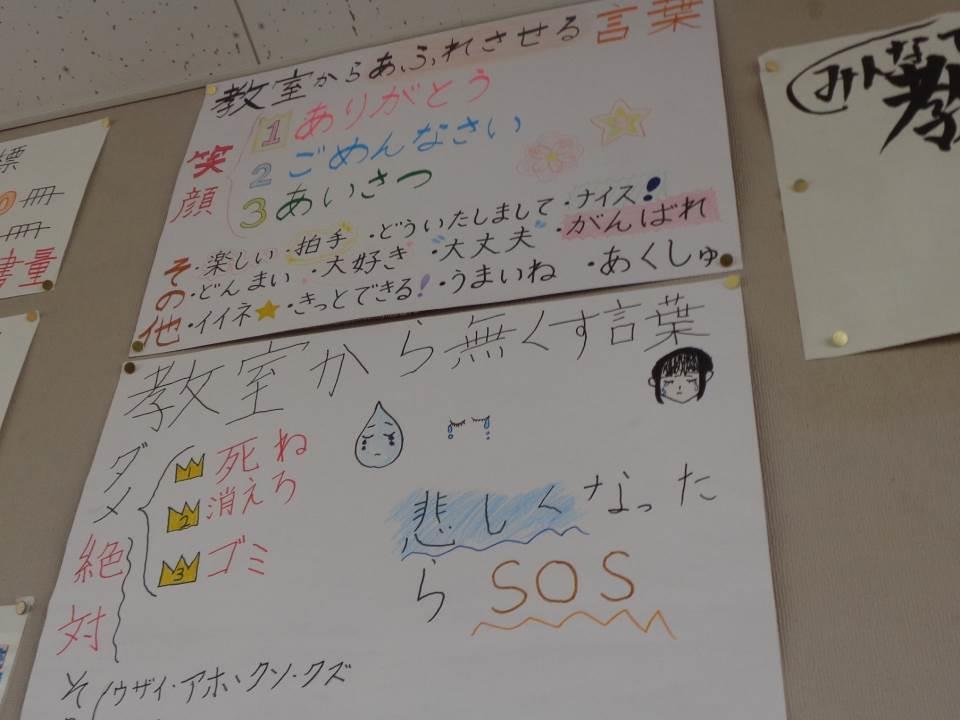 教室からあふれさせる言葉
笑顔
1 ありがとう
2 ごめんなさい
3 あいさつ
その他
・楽しい・拍手・どういたしまして・ナイス!
・どんまい・大好き・大丈夫・がんばれ
・イイネ★・きっとできる!・うまいね・あくしゅ
教室から無くす言葉
ダメ
絶対
1 死ね
2 消えろ
3 ゴミ
悲しくなった
ら SOS
そ
ウザイ・アホ・クソ・クズ
標
冊
冊
書量
みんなで
教